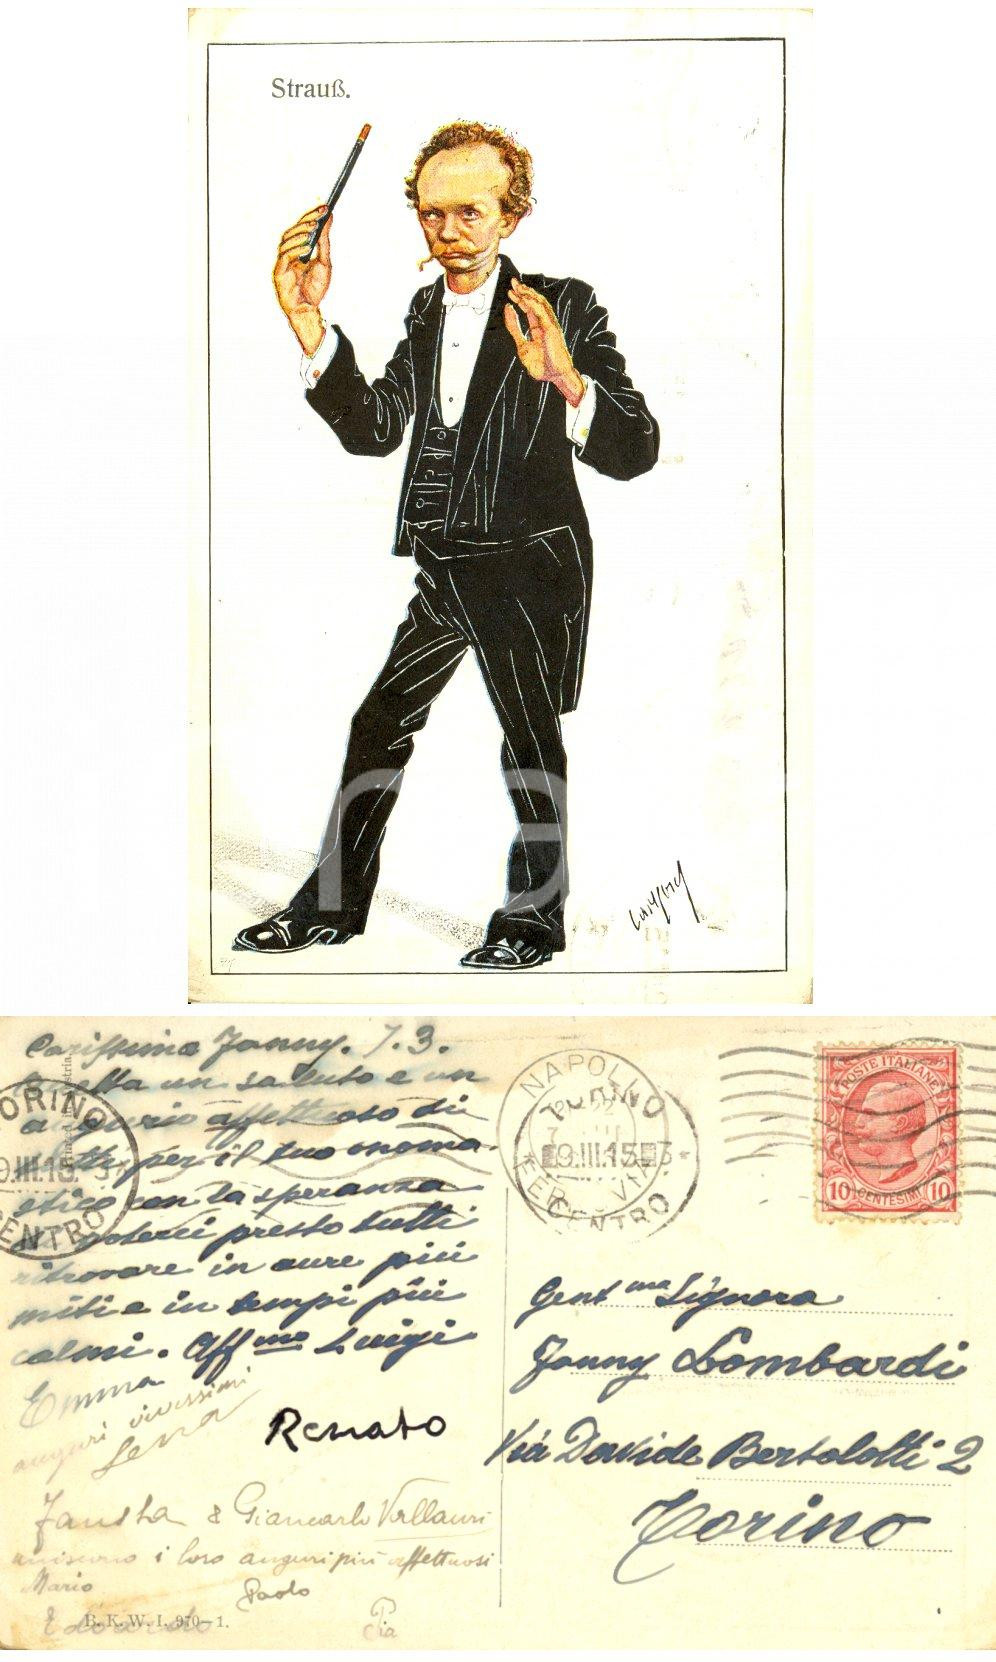 Strauß.
Carissima Fanny. 7.3.
un saluto e un
augurio affettuoso di
tutti per il tuo onoma-
stico con la speranza
di poterci presto tutti
ritrovare in aure più
miti e in tempi più
calmi. Aff.mo Luigi
Emma
auguri vivissimi
Lena
Renato
Fausta & Giancarlo Vallauri
uniscono i loro auguri più affettuosi
Mario
Paolo
Edoardo
Pia
B. K. W. I. 970-1.
TORINO
9.III.15
CENTRO
NAPOLI
FERROVIA
TORINO
9.III.15
CENTRO
POSTE ITALIANE
10 CENTESIMI 10
Gent.ma Signora
Fanny Lombardi
Via Davide Bertolotti 2
Torino